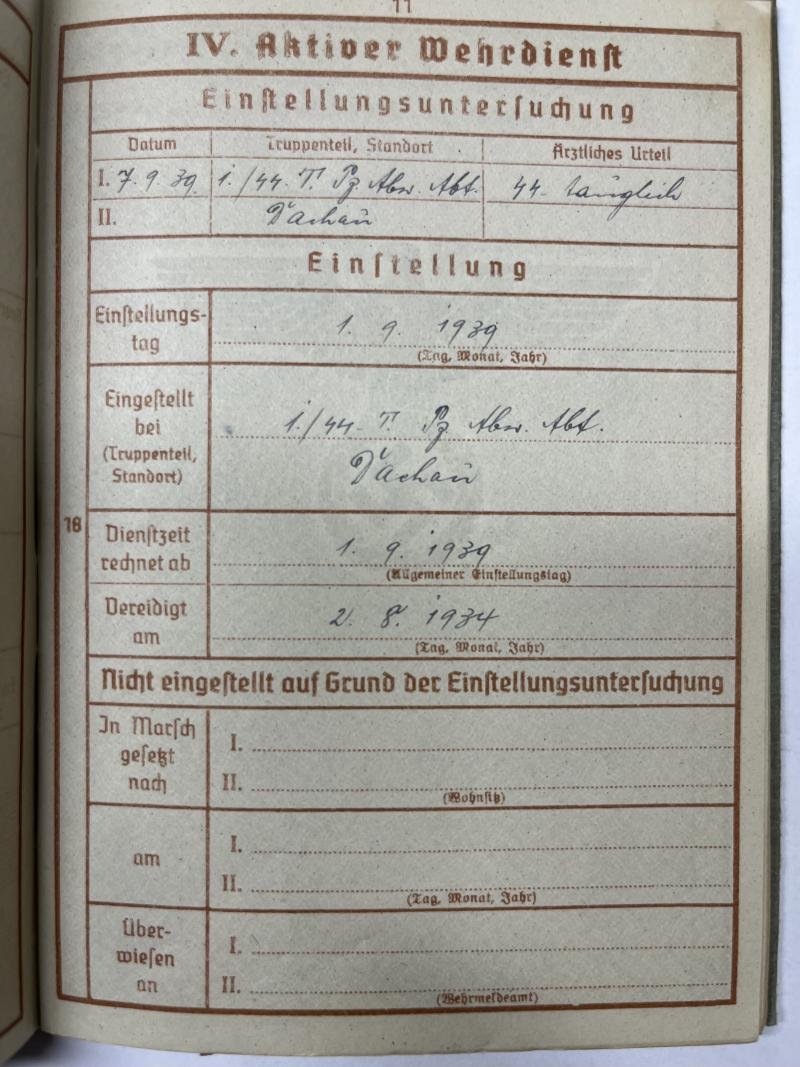 11
IV. Aktiver Wehrdienst
Einstellungsuntersuchung
Datum Truppenteil, Standort Ärztliches Urteil
I. 7. 9. 39. 1./44-T. Pz. Abw. Abt. 44-tauglich
II. Dachau
Einstellung
Einstellungs-
tag
1. 9. 1939
(Tag, Monat, Jahr)
Eingestellt
bei
(Truppenteil,
Standort)
1./44-T. Pz. Abw. Abt.
Dachau
18
Dienstzeit
rechnet ab
1. 9. 1939
(Allgemeiner Einstellungstag)
Vereidigt
am
2. 8. 1934
(Tag, Monat, Jahr)
Nicht eingestellt auf Grund der Einstellungsuntersuchung
In Marsch
gesetzt
nach
I.
II.
(Wohnsitz)
am
I.
II.
(Tag, Monat, Jahr)
Über-
wiesen
an
I.
II.
(Wehrmeldeamt)